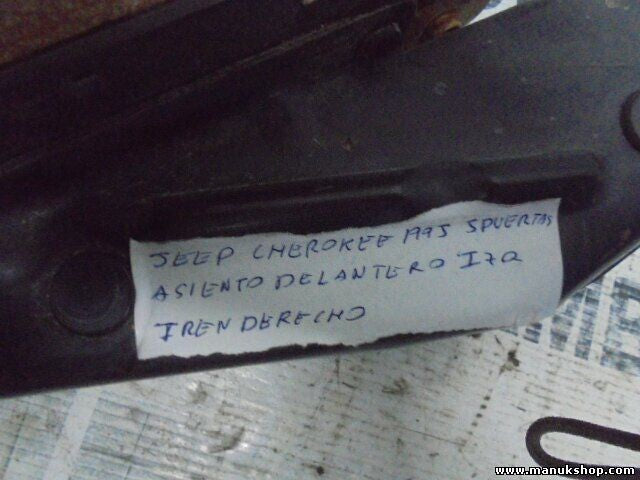 JEEP CHEROKEE 1995 5PUERTAS
ASIENTO DELANTERO IZQ
TREN DERECHO
www.manukshop.com